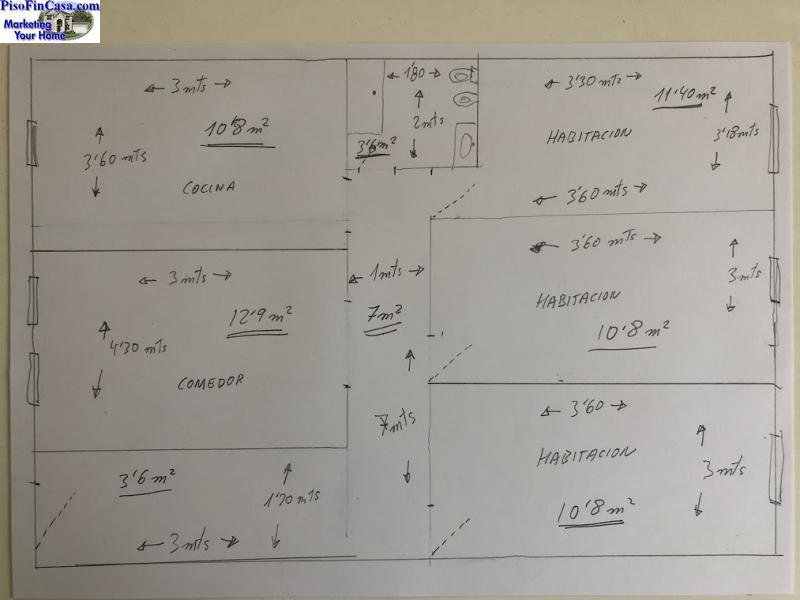 PisoFinCasa.com
Marketing
Your Home
3 mts
10'8 m²
3'60 mts
COCINA
1'80
2 mts
3'6 m²
3'30 mts
11'40 m²
HABITACION
3'18 mts
3'60 mts
3 mts
12'9 m²
4'30 mts
COMEDOR
1 mts
7 m²
7 mts
3'60 mts
3 mts
HABITACION
10'8 m²
3'60
HABITACION
3 mts
10'8 m²
3'6 m²
1'20 mts
3 mts